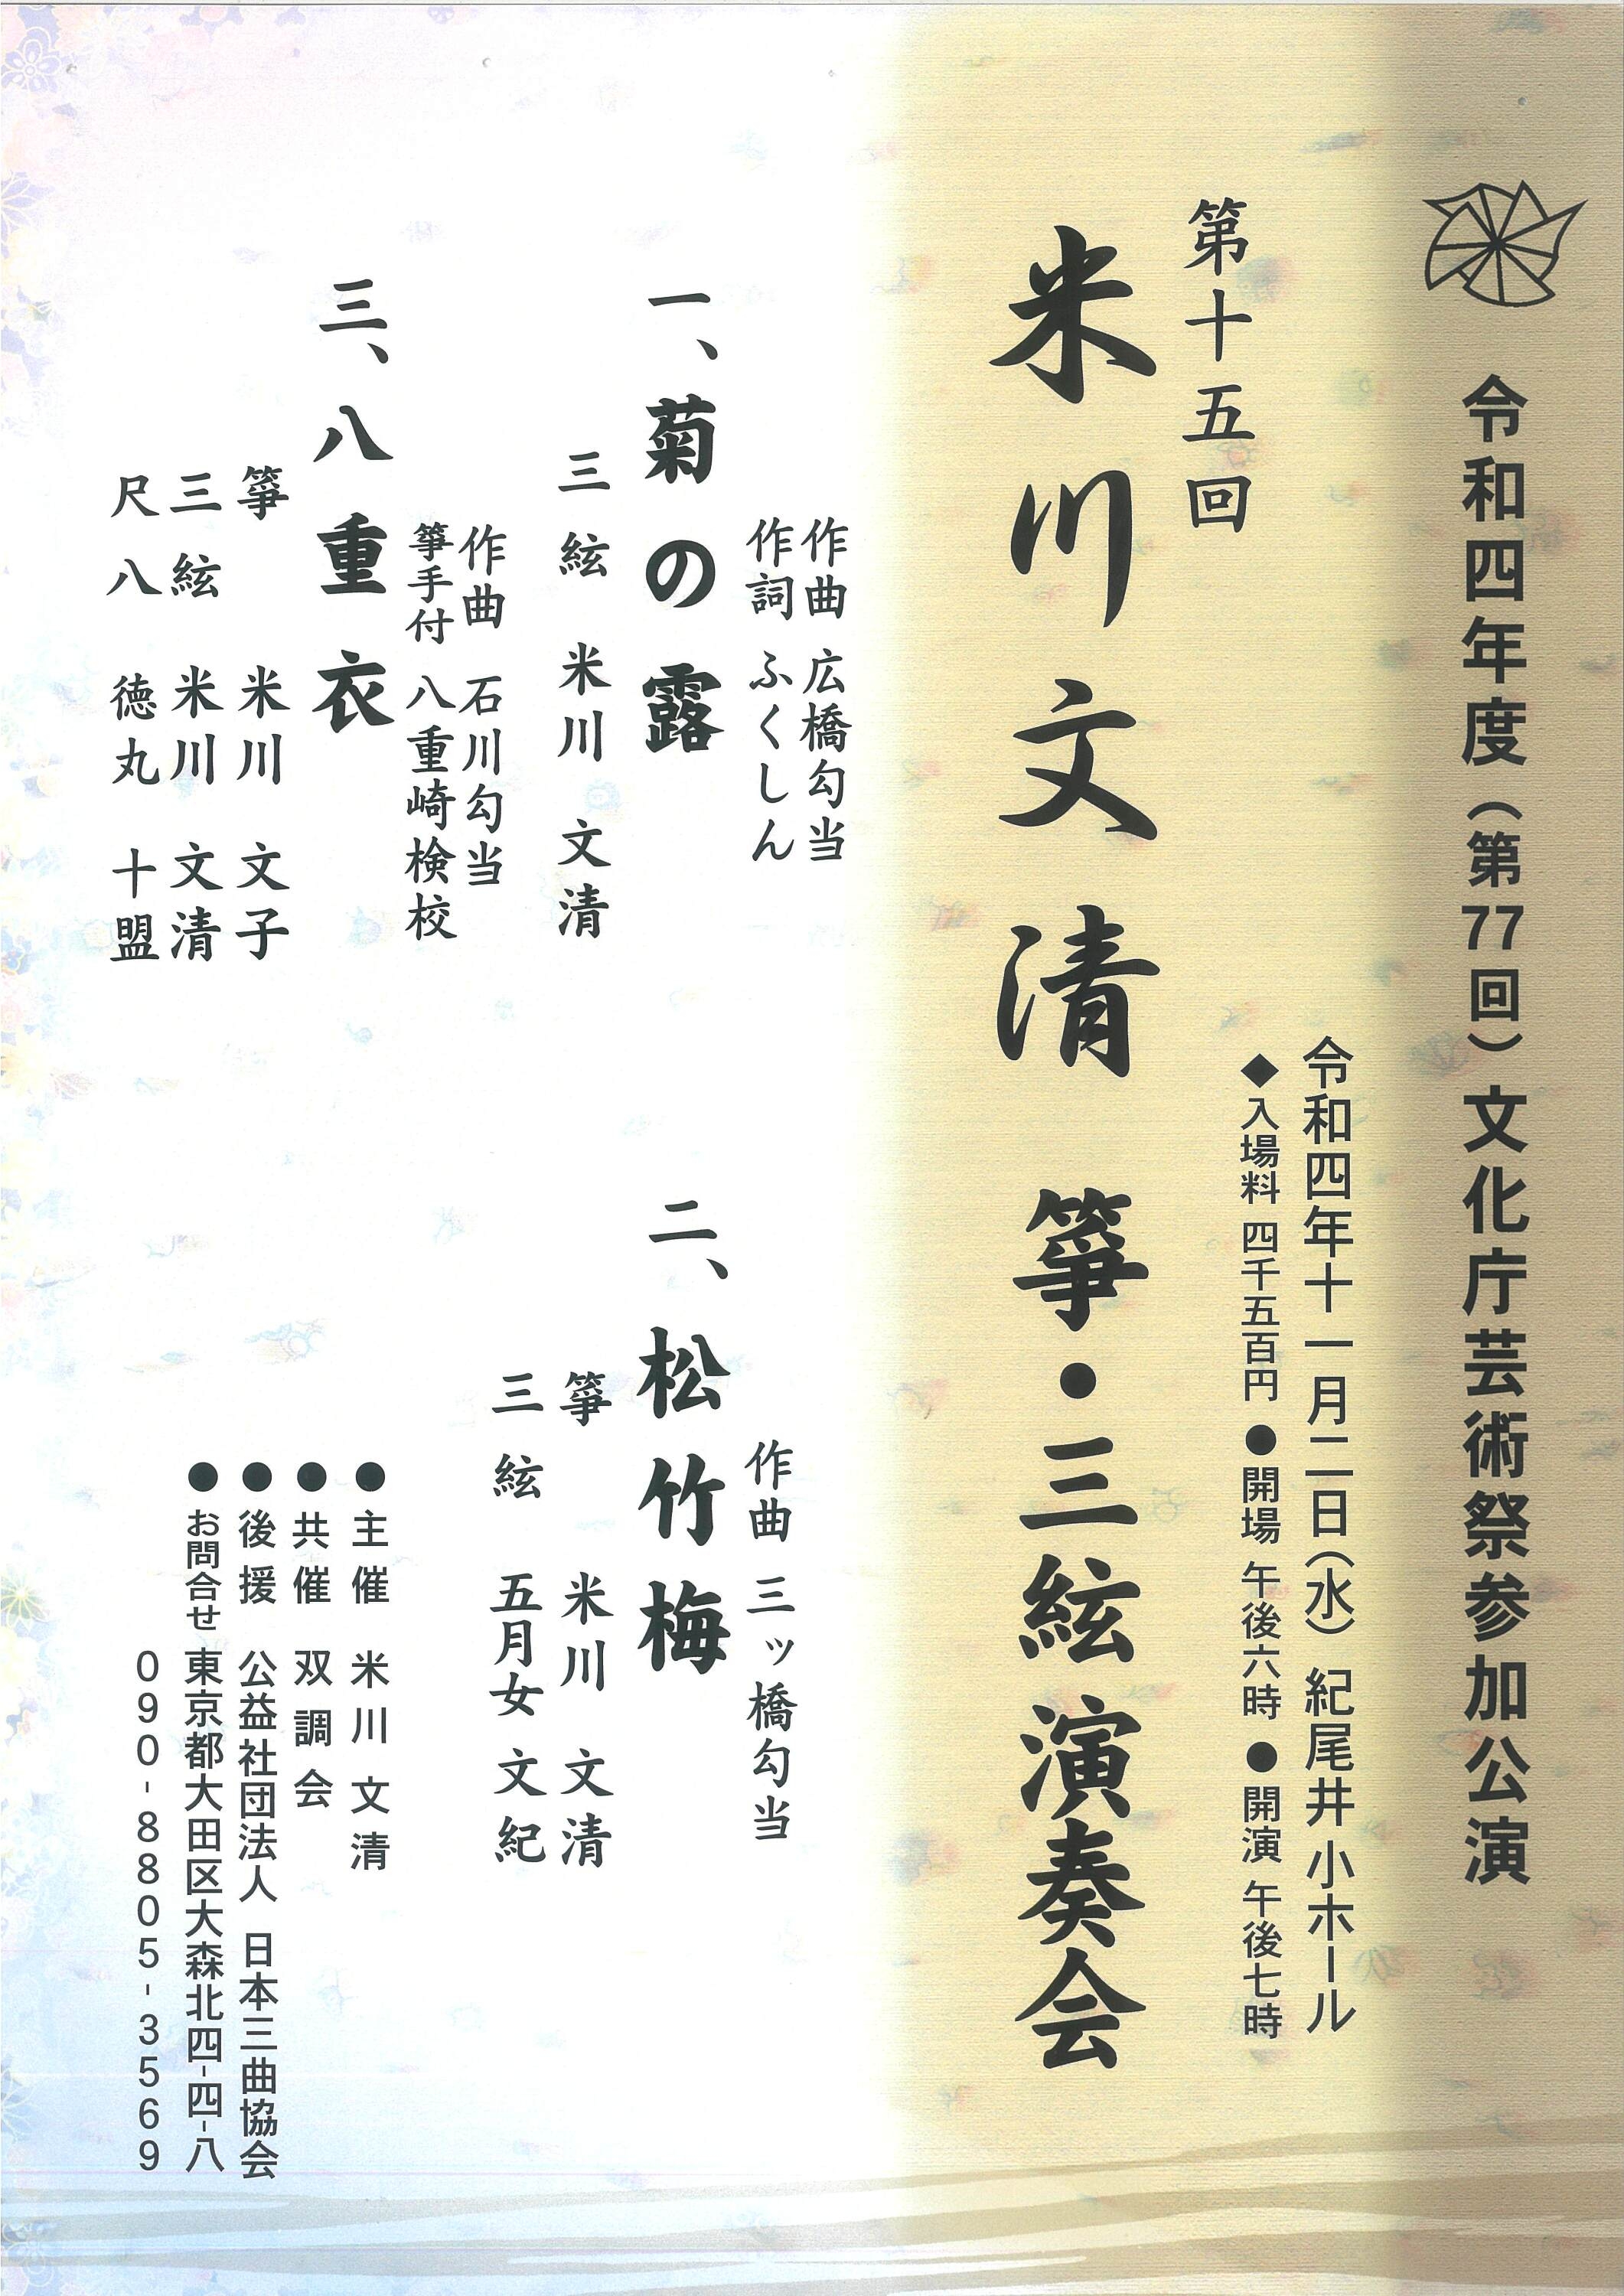 令和四年度（第77回）文化庁芸術祭参加公演
令和四年十一月二日（水）紀尾井 小ホール
◆入場料 四千五百円 ●開場 午後六時 ●開演 午後七時
第十五回
米川文清 箏・三絃 演奏会
作曲 広橋勾当
作詞 ふくしん
一、菊の露
三絃 米川 文清
作曲 三ッ橋勾当
二、松竹梅
箏 米川 文清
三絃 五月女 文紀
作曲 石川勾当
箏手付 八重崎検校
三、八重衣
箏 米川 文子
三絃 米川 文清
尺八 徳丸 十盟
●主催 米川文清
●共催 双調会
●後援 公益社団法人 日本三曲協会
●お問合せ 東京都大田区大森北四-四-八
090-8805-3569